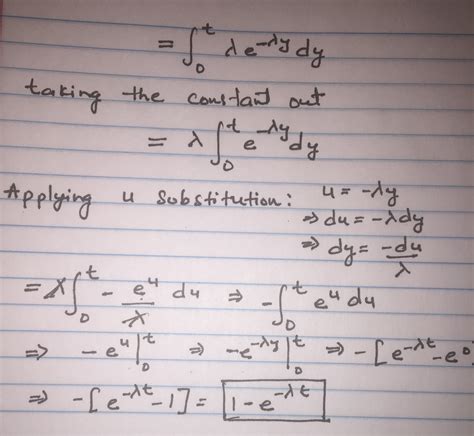 = ∫₀ᵗ λe^{-λy} dy
taking the constant out
= λ ∫₀ᵗ e^{-λy} dy
Applying u substitution: u = -λy
⇒ du = -λdy
⇒ dy = -du/λ
= λ ∫₀ᵗ - e^u/λ du ⇒ - ∫₀ᵗ e^u du
⇒ -e^u |₀ᵗ ⇒ -e^{-λy} |₀ᵗ ⇒ -[e^{-λt} - e^0
⇒ -[e^{-λt} - 1] = 1 - e^{-λt}